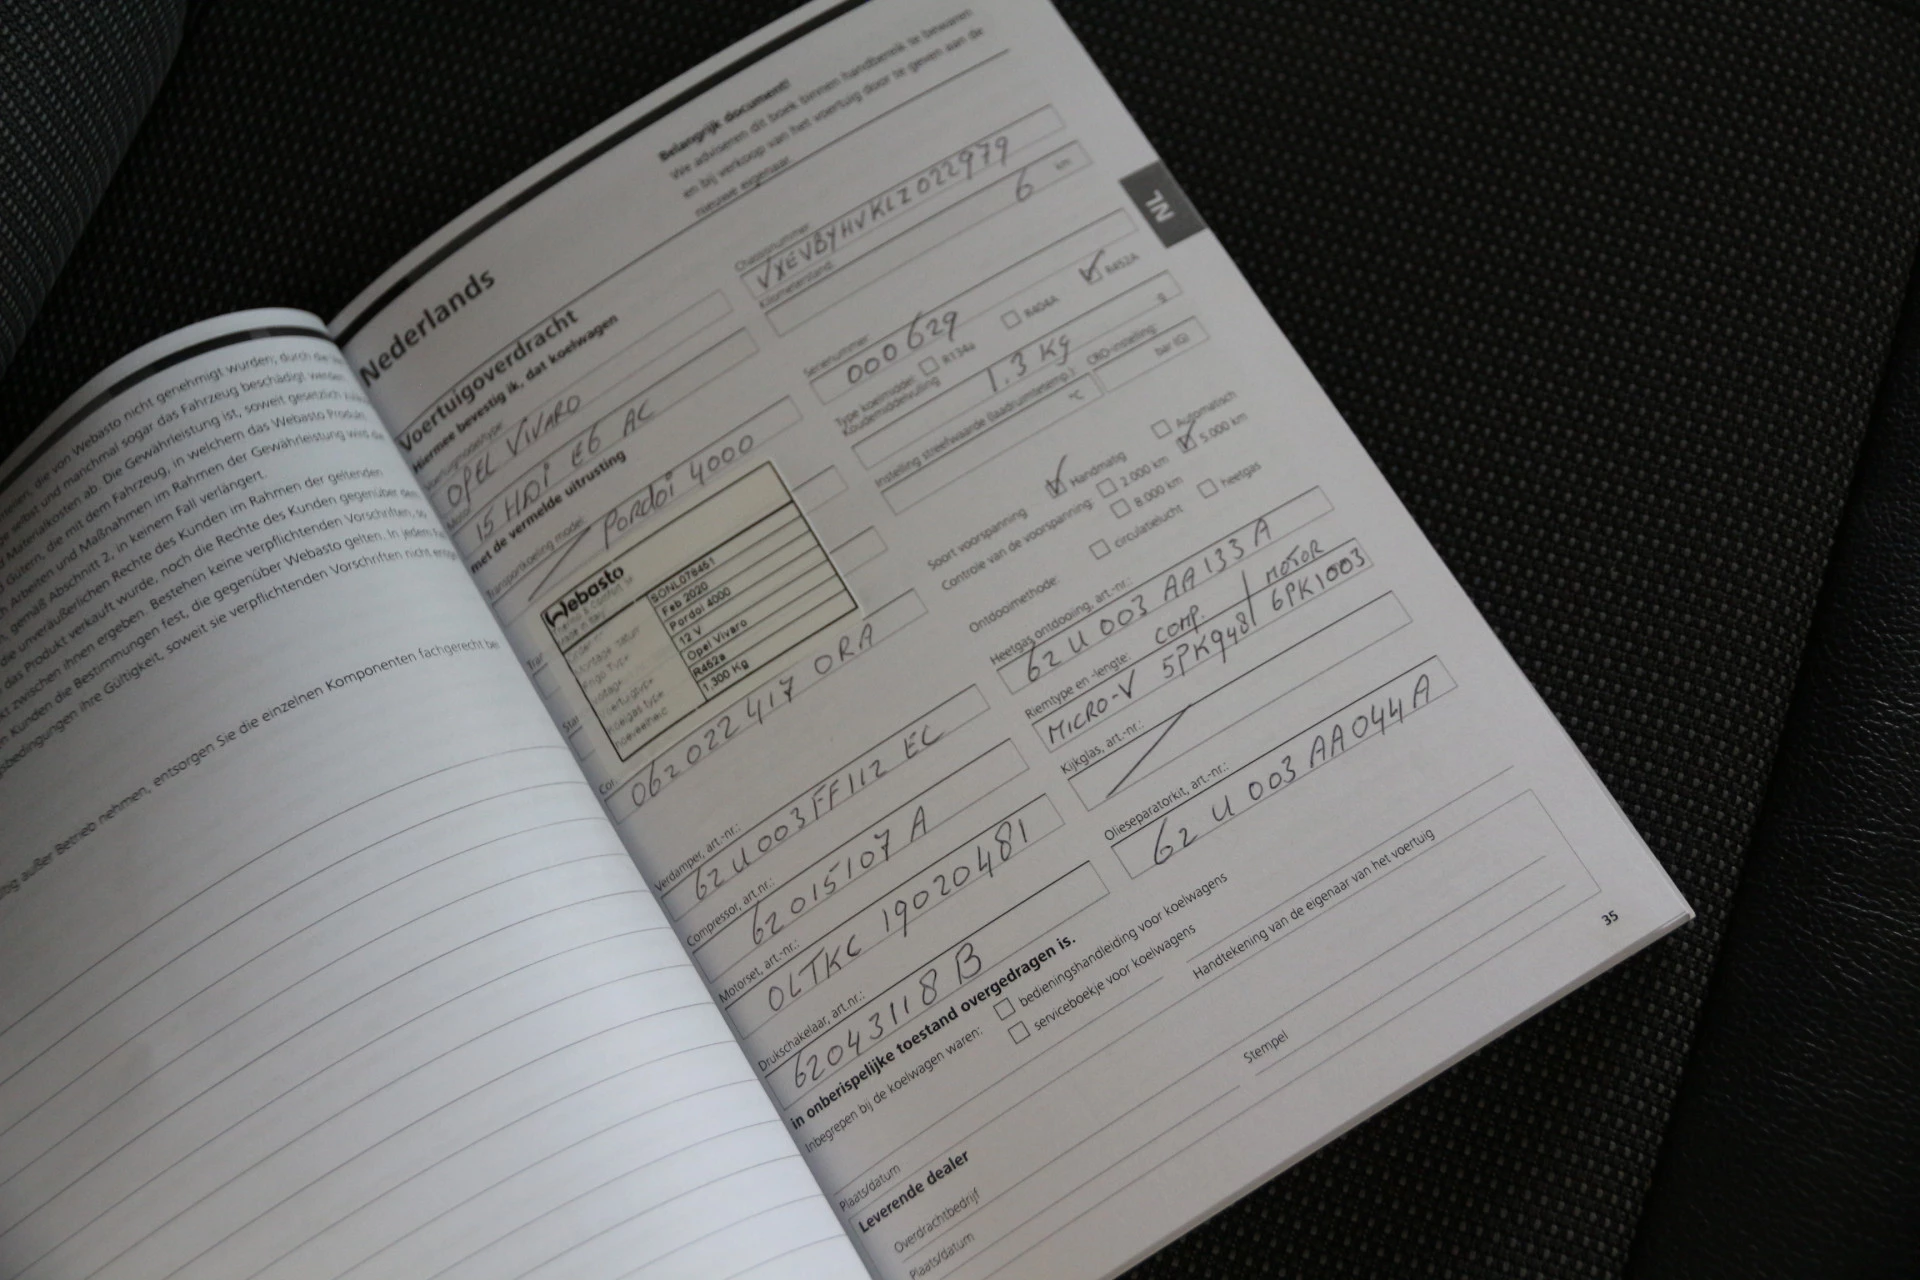 die von Webasto nicht genehmigt wurden; durch die
selbst und manchmal sogar das Fahrzeug beschädigt werden.
Materialkosten ab. Die Gewährleistung ist, soweit gesetzlich
Gütern, die mit dem Fahrzeug, in welchem das Webasto Produkt
Arbeiten und Maßnahmen im Rahmen der Gewährleistung wird die
gemäß Abschnitt 2, in keinem Fall verlängert.
die unveräußerlichen Rechte des Kunden im Rahmen der geltenden
das Produkt verkauft wurde, noch die Rechte des Kunden gegenüber dem
zwischen ihnen ergeben. Bestehen keine verpflichtenden Vorschriften, so
Kunden die Bestimmungen fest, die gegenüber Webasto gelten. In jedem
ihre Gültigkeit, soweit sie verpflichtenden Vorschriften nicht
außer Betrieb nehmen, entsorgen Sie die einzelnen Komponenten fachgerecht
Nederlands
Belangrijk document!
We adviseren dit boek binnen handbereik te bewaren
en bij verkoop van het voertuig door te geven aan de
nieuwe eigenaar
NL
Voertuigoverdracht
Hiermee bevestig ik, dat koelwagen
OPEL VIVARO
15 HDi E6 AC
Chassisnummer
VXEVBYHVKLZ022979
Kilometerstand:
6 km
met de vermelde uitrusting
Transportkoeling model:
Pordoi 4000
Webasto
Made in Italy
SONL076451
Feb 2020
Pordoi 4000
12 V
Opel Vivaro
R452a
1,300 Kg
062022417 0RA
Verdamper, art.-nr.:
62U003FF112 EC
Compressor, art.nr.:
62015107 A
Motorset, art.-nr.:
OLTKC 19020481
Drukschakelaar, art.nr.:
62043118 B
Serienummer
000629
Type koelmiddel
R134a
R404A
R452A
Koudemiddelvulling
1.3 Kg
g
Instelling streefwaarde (laadruimtetemp.):
°C
CRO-instelling
bar (Ü)
Soort voorspanning
Handmatig
Automatisch
Controle van de voorspanning:
2.000 km
5.000 km
8.000 km
Ontdooimethode:
circulatielucht
heetgas
Heetgas ontdooiing, art.-nr.:
62 U 003 AA 133 A
Riemtype en -lengte:
COMP. / MOTOR
MICRO-V 5PK948 / 6PK1003
Kijkglas, art.-nr.:
Olieseparatorkit, art.-nr.:
62 U 003 AA 044 A
in onberispelijke toestand overgedragen is.
Inbegrepen bij de koelwagen waren:
bedieningshandleiding voor koelwagens
serviceboekje voor koelwagens
Plaats/datum
Handtekening van de eigenaar van het voertuig
Leverende dealer
Overdrachtbedrijf
Stempel
Plaats/datum
35